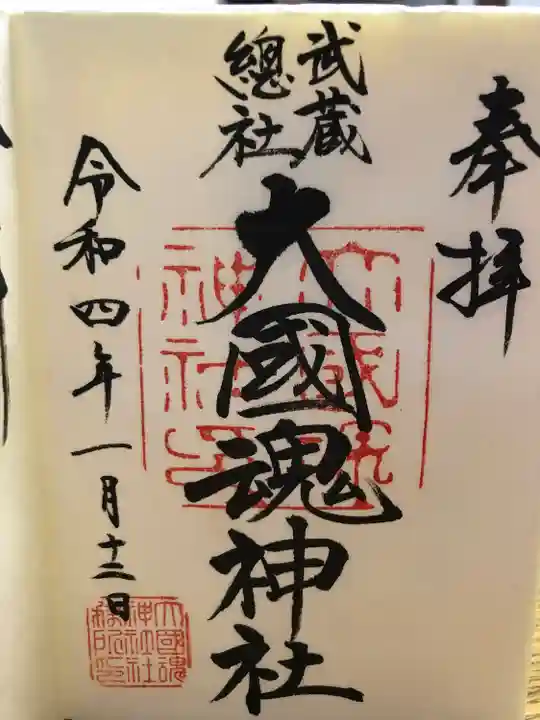 奉拝
武蔵
總社
大國魂神社
令和四年一月十二日
大國魂
神社社
務所印